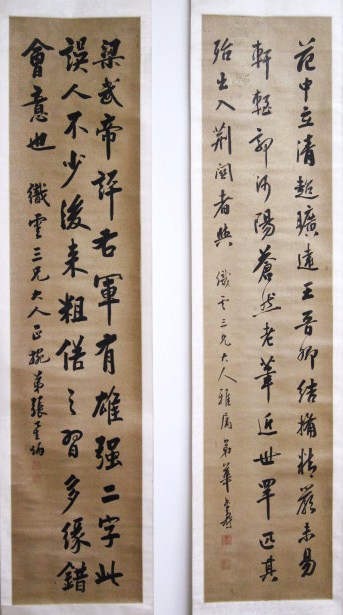 范中立清超曠遠王晉卿結搆精嚴未易
軒輊郭河陽蒼然老筆近世罕匹其
殆出入荊關者與 織雲三兄大人雅屬 弟華
梁武帝評右軍有雄强二字此
誤人不少後来粗俗之習多緣錯
會意也 織雲三兄大人正捥 弟張